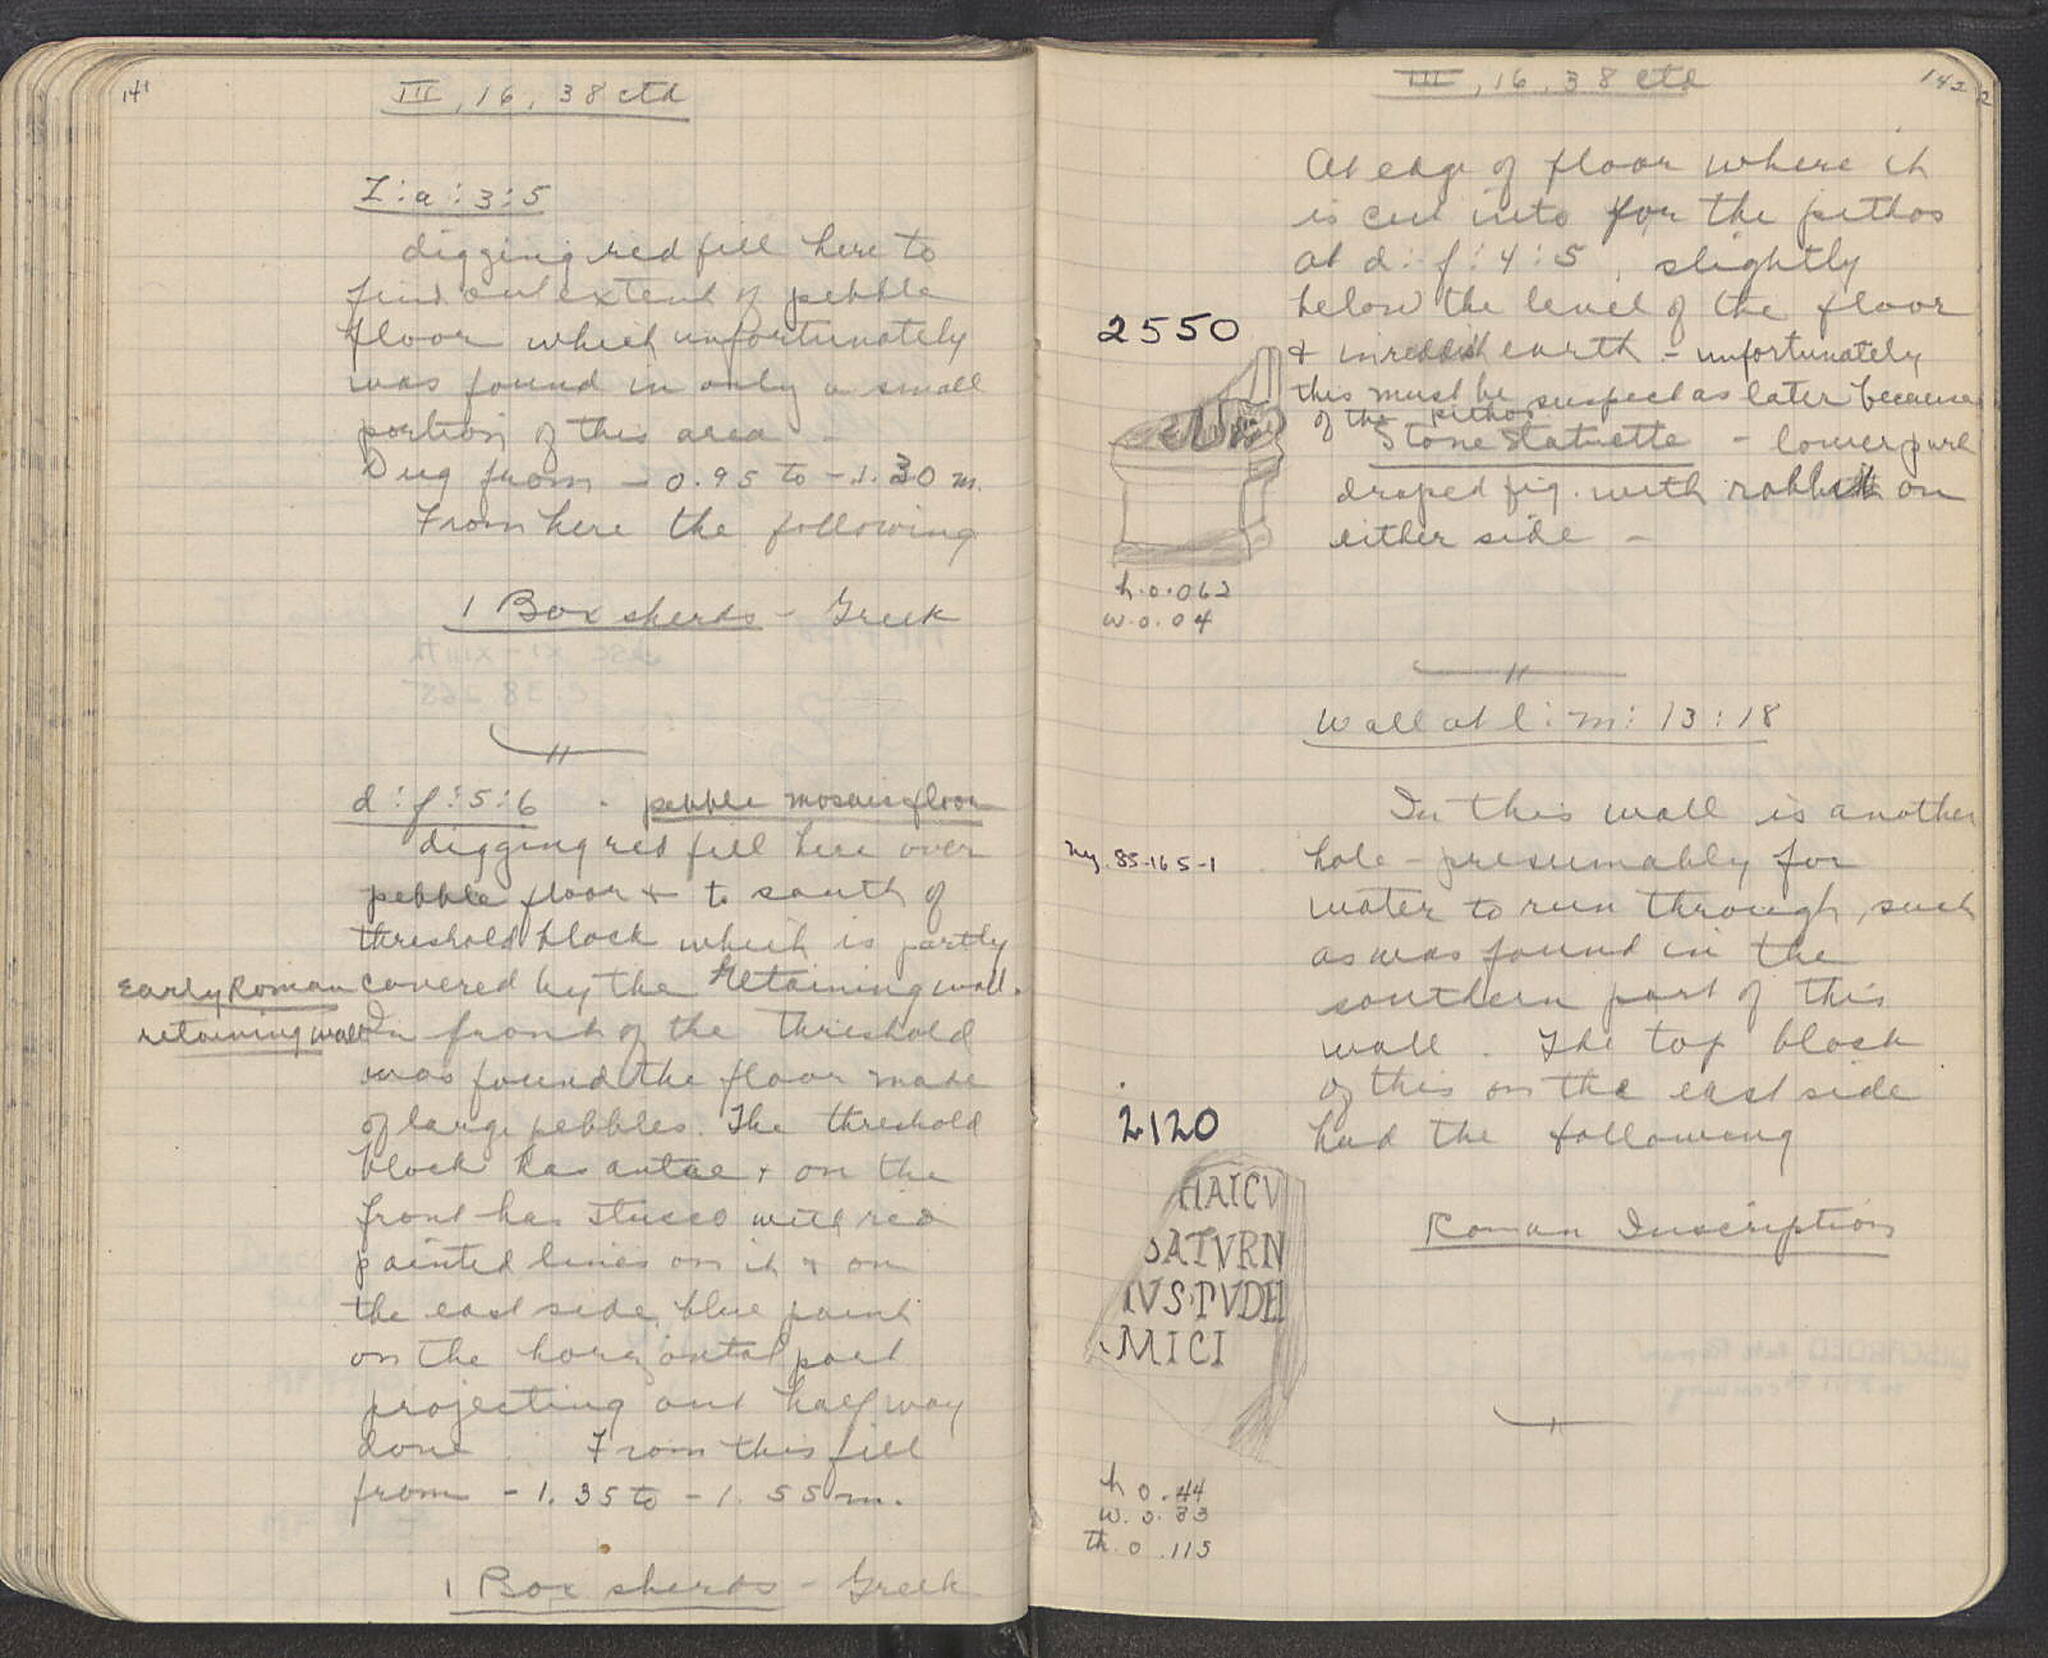 141
III, 16, 38 ctd
Z:a:3:5
digging red fill here to
find out extent of pebble
floor which unfortunately
was found in only a small
portion of this area -
Dug from -0.95 to -1.30 m.
From here the following
1 Box sherds - Greek
d:f:5:6 - pebble mosaic floor
digging red fill here over
pebble floor + to south of
threshold block which is partly
Early Roman
covered by the retaining wall.
retaining wall
In front of the threshold
was found the floor made
of large pebbles. The threshold
block has antae + on the
front has stucco with red
painted lines on it + on
the east side, blue paint
on the horizontal part
projecting out half way
done. From this fill
from -1.35 to -1.55 m.
1 Box sherds - Greek
III, 16, 38 ctd
142
At edge of floor where it
is cut into for the pithos
at d:f:4:5, slightly
below the level of the floor
2550
+ in reddish earth - unfortunately
this must be suspect as later because
of the pithos
Stone statuette - lower part
draped fig. with rabbit on
either side -
h.0.062
w.0.04
Wall at l:m:13:18
In this wall is another
neg. 85-165-1
hole - presumably for
water to run through, such
as was found in the
southern part of this
wall. The top block
of this on the east side
2120
had the following
HAICV
SATVRN
IVS·PVDE
MICI
Roman Inscription
h 0.44
w. 0.33
th. 0.115